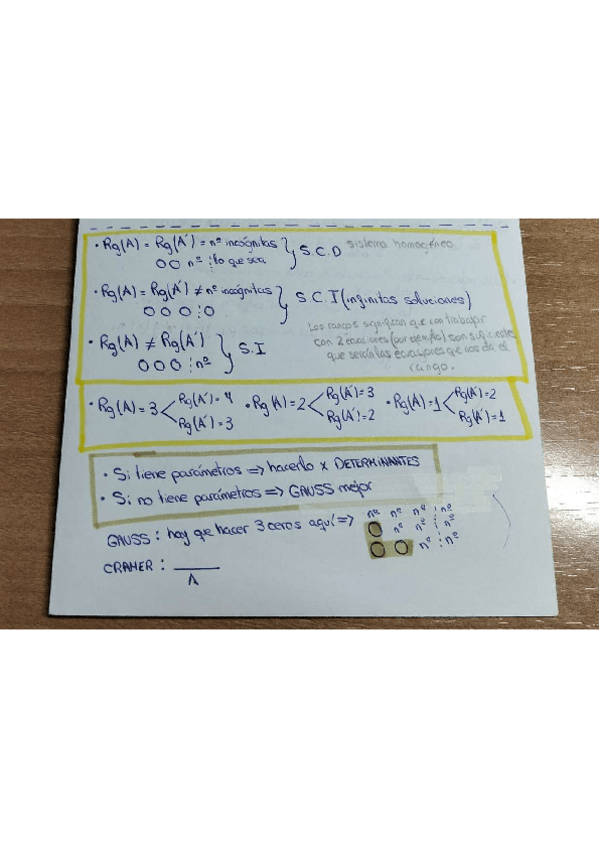 · Rg(A) = Rg(A') = nº incógnitas } S.C.D sistema homogéneo
O O nº ⋮ lo que sea
· Rg(A) = Rg(A') ≠ nº incógnitas } S.C.I (infinitas soluciones)
O O O ⋮ O
Los rangos significan que con trabajar
· Rg(A) ≠ Rg(A') } S.I con 2 ecuaciones (por ejemplo) son suficientes
O O O ⋮ nº que serían las ecuaciones que nos da el
rango.
· Rg(A) = 3 < Rg(A') = 4 · Rg(A) = 2 < Rg(A') = 3 · Rg(A) = 1 < Rg(A') = 2
Rg(A') = 3 Rg(A') = 2 Rg(A') = 1
· Si tiene parámetros => hacerlo x DETERMINANTES
· Si no tiene parámetros => GAUSS mejor
GAUSS : hay que hacer 3 ceros aquí => nº nº nº ⋮ nº
O nº nº ⋮ nº
O O nº ⋮ nº
CRAMER : ____
A